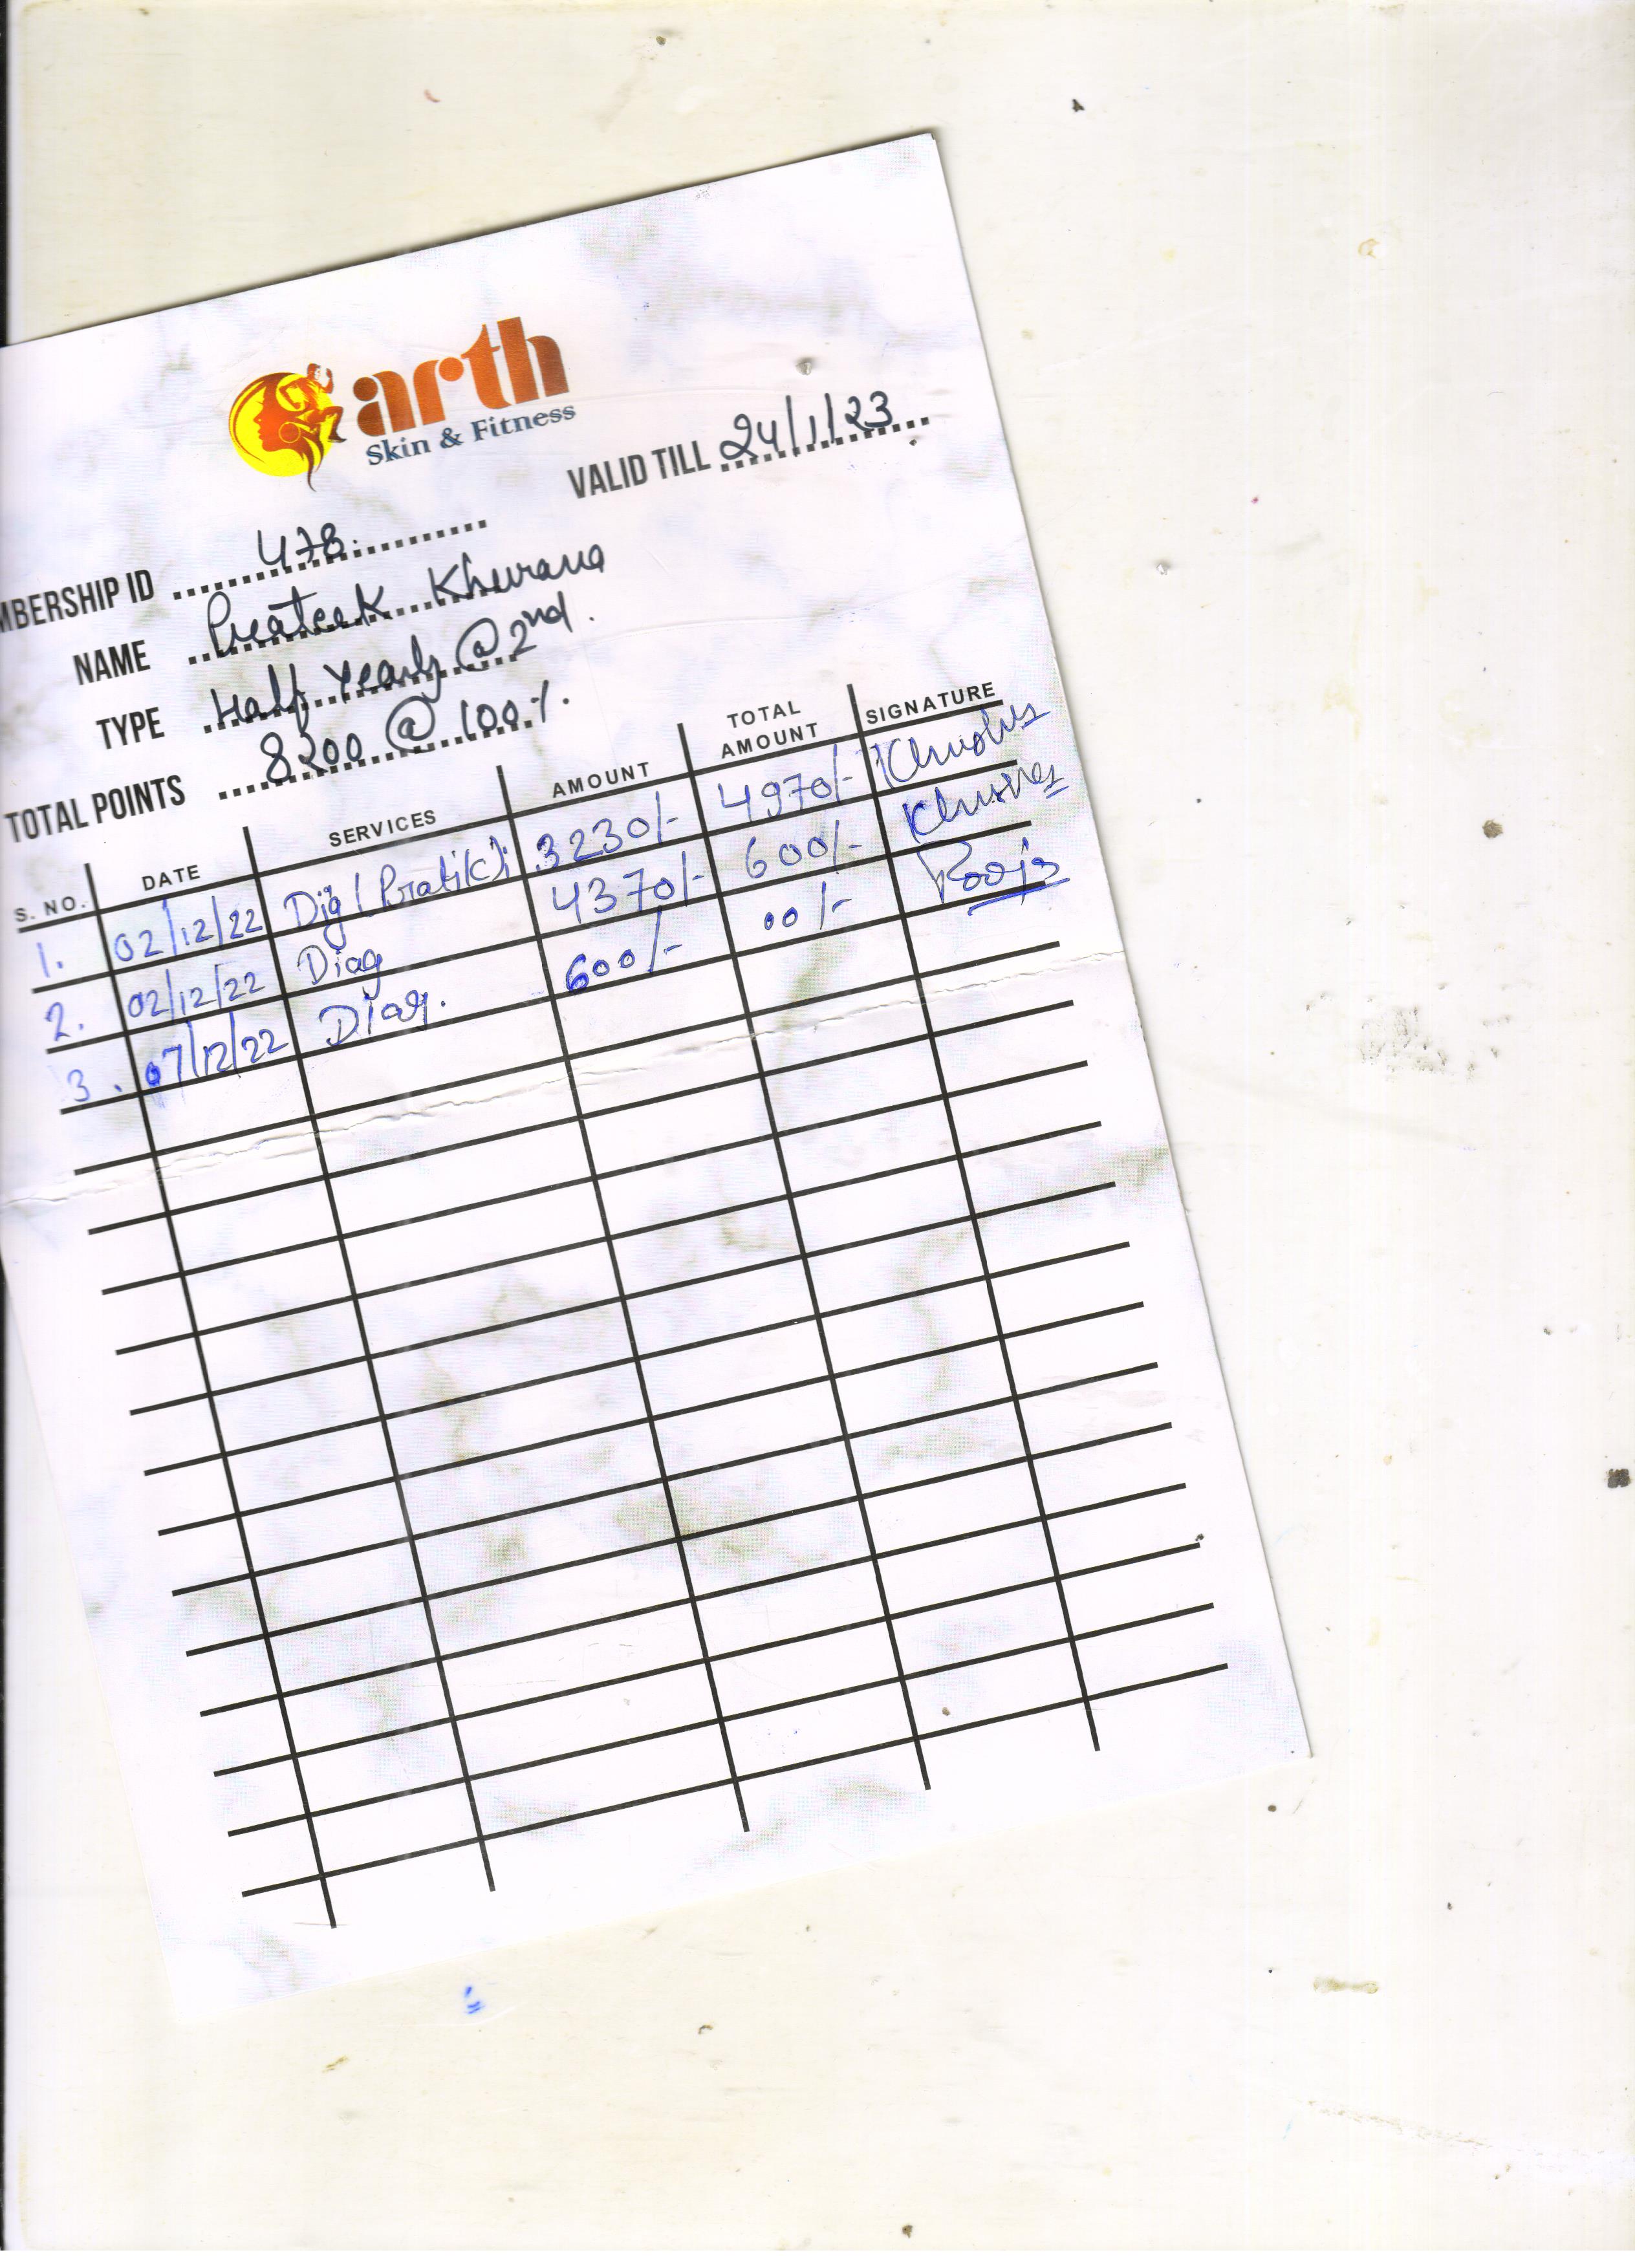 arth
Skin & Fitness
VALID TILL 24/1/23
MBERSHIP ID 478
NAME Prateek Khurana
TYPE Half Yearly @ 2nd.
TOTAL POINTS 8200 @ 100%.
S. NO. DATE SERVICES AMOUNT TOTAL AMOUNT SIGNATURE
1. 02/12/22 3230/- 4970/-
2. 02/12/22 Diag 4370/- 600/-
3. 07/12/22 Diag. 600/- 00/- Pooja